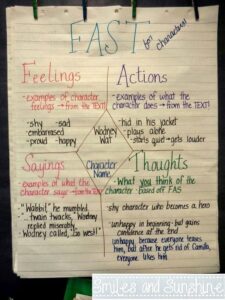 FAST for characters!
Feelings
- examples of character feelings → from the TEXT!
- shy - sad
- embarrassed
- proud - happy
Actions
- examples of what the character does → from TEXT!
- hid in his jacket
- plays alone
- starts quiet → gets louder
Wodney Wat
Character Name
Sayings
- examples of what the character says → from the
- "Wabbit," he mumbled.
- "Twain twacks," Wodney replied miserably.
- Wodney called, "Go west!"
Thoughts
- What you think of the character based off FAS
- shy character who becomes a hero
- unhappy in beginning - but gains confidence at the end
- unhappy because everyone teases him, but after he gets rid of Camilla, everyone likes him
Smiles and Sunshine